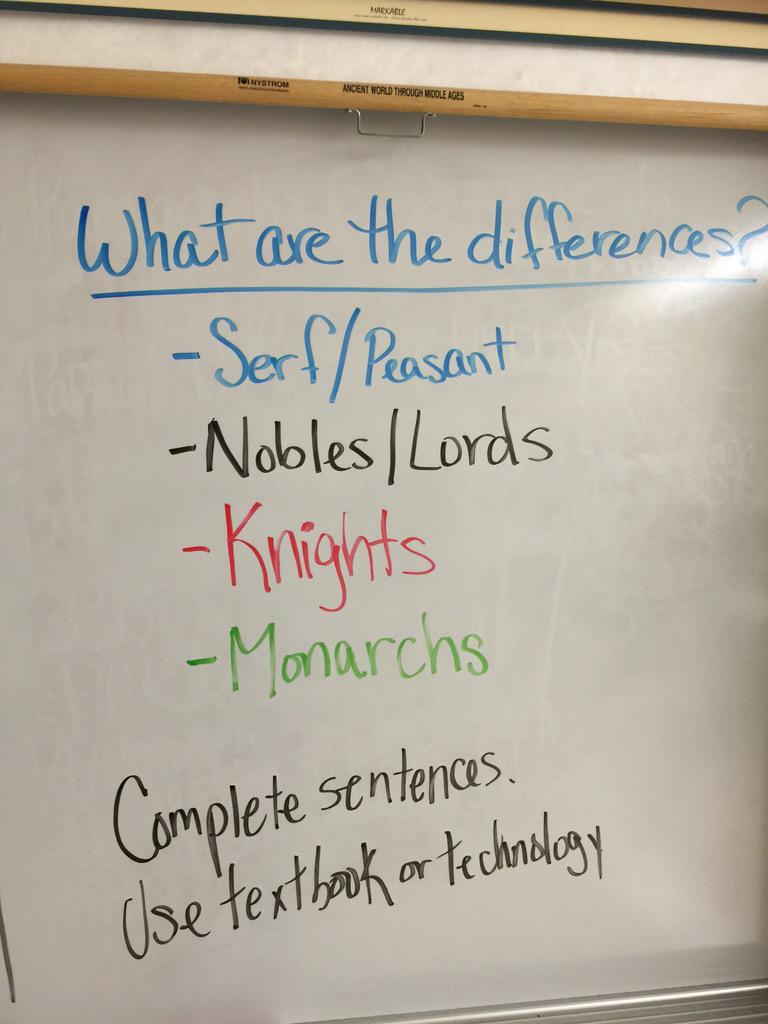 MARKABLE
NYSTROM
ANCIENT WORLD THROUGH MIDDLE AGES
What are the differences?
- Serf/Peasant
- Nobles/Lords
- Knights
- Monarchs
Complete sentences.
Use textbook or technology